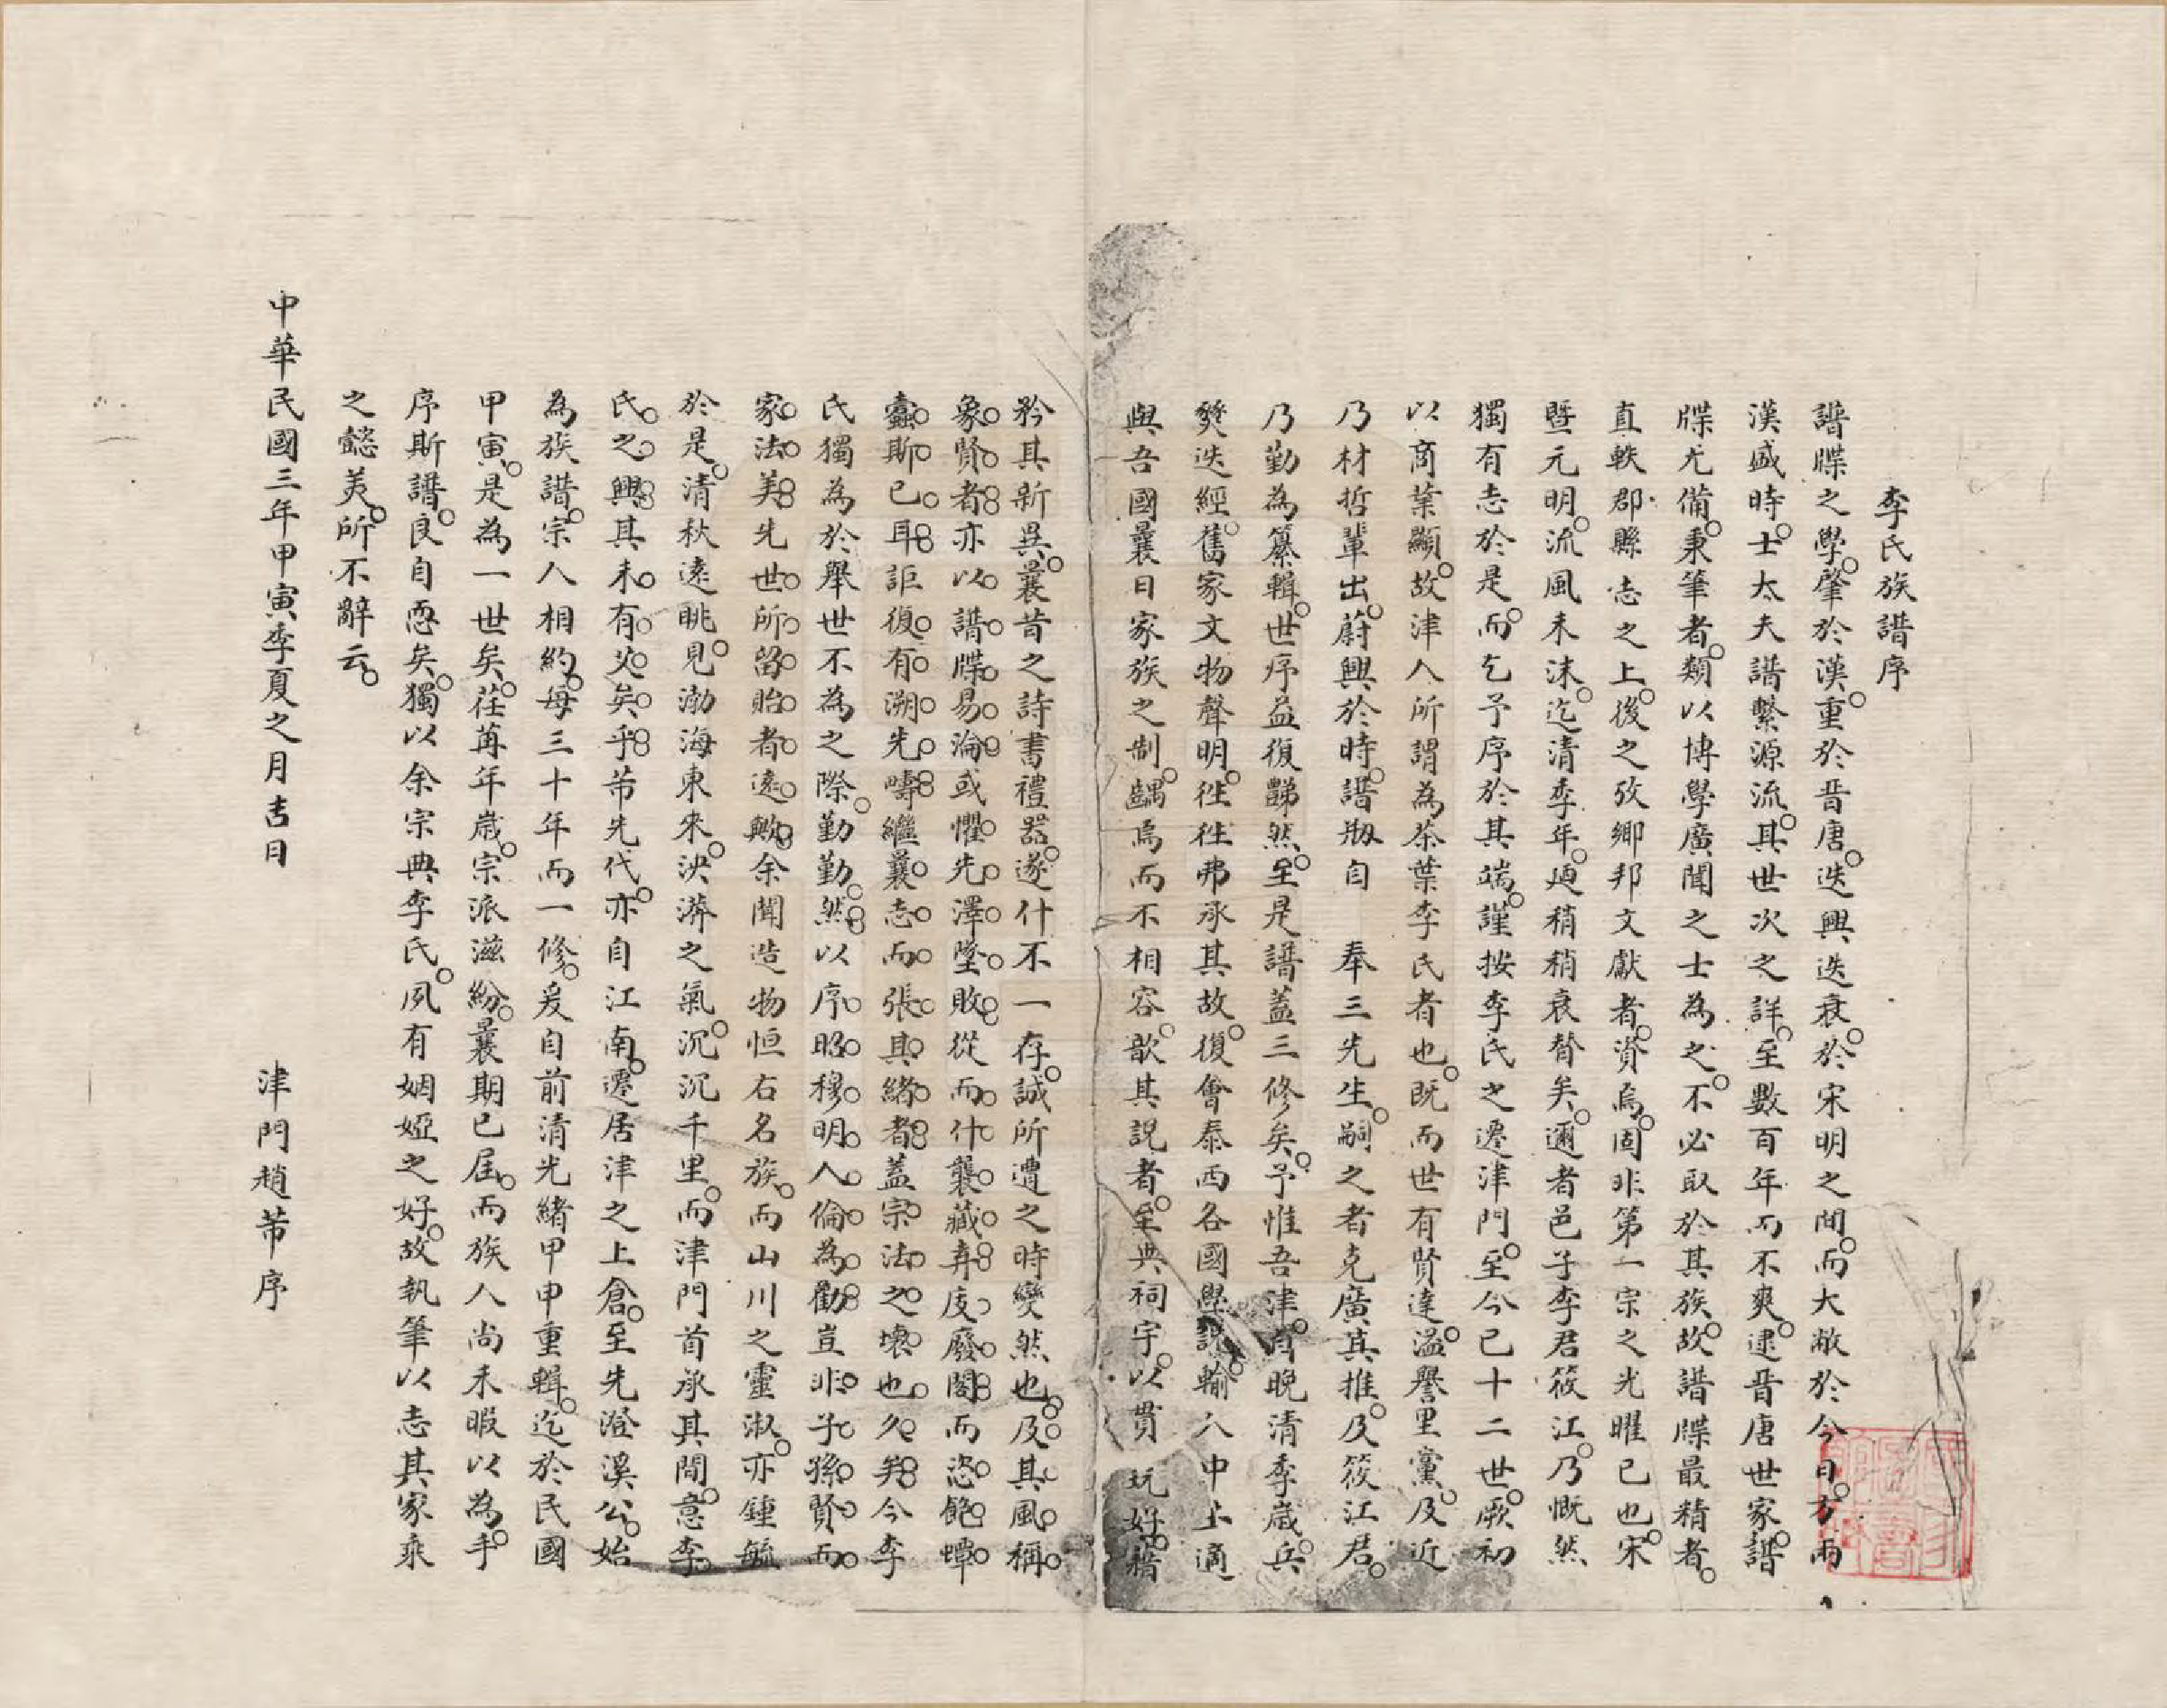 李氏族譜序
譜牒之學。肇於漢。重於晋唐。迭興迭衰。於宋明之間。而大敝於今日。方兩
漢盛時。士大夫譜繫源流。其世次之詳。至數百年而不爽。逮晋唐世家。譜
牒尤備。秉筆者。類以博學廣聞之士為之。不必取於其族。故譜牒最精者。
直軼郡縣志之上。後之攷鄉邦文獻者。資焉。固非第一宗之光曜已也。宋
暨元明。流風未沫。迄清季年。廼稍稍衰替矣。邇者邑子李君筱江。乃慨然
獨有志於是。而乞予序於其端。謹按李氏之遷津門。至今已十二世。厥初
以商業顯。故津人所謂為茶葉李氏者也。既而世有賢達。溢譽里黨。及近
乃材哲輩出。蔚興於時。譜刱自 奉三先生。嗣之者克廣其推。及筱江君。
乃勤為纂輯。世序益復豑然。至是譜蓋三修矣。予惟吾津。自晚清季歲。兵
燹迭經。舊家文物聲明。往往弗承其故。復會泰西各國學說。輸入中土。適
與吾國曩日家族之制。齲焉而不相容。歆其說者。至典祠宇。以貫玩好。藉
矜其新異。曩昔之詩書禮器。遂什不一存。誠所遭之時變然也。及其風稱
象賢者。亦以譜牒易淪。或懼先澤墜敗。從而什襲藏弆。庋廢閣。而恣飽蟫
蠹斯已耳。詎復有溯先疇。繼曩志。而張其緒者。蓋宗法之壞也久矣。今李
氏獨為於舉世不為之際。勤勤然。以序昭穆。明人倫為勸。豈非子孫賢而
家法美。先世所留貽者遠歟。余聞造物恒右名族。而山川之靈淑。亦鍾毓
於是。清秋遠眺。見渤海東來。泱漭之氣。沉沉千里。而津門首承其間。意李
氏之興。其未有艾矣乎。芾先代。亦自江南。遷居津之上倉。至先澄溪公。始
為族譜。宗人相約。每三十年而一修。爰自前清光緒甲申重輯。迄於民國
甲寅。是為一世矣。荏苒年歲。宗派滋紛。曩期已屆。而族人尚未暇以為。手
序斯譜。良自恧矣。獨以余宗典李氏。夙有姻婭之好。故執筆以志其家乘
之懿美。所不辭云。
中華民國三年甲寅季夏之月吉日 津門趙芾序